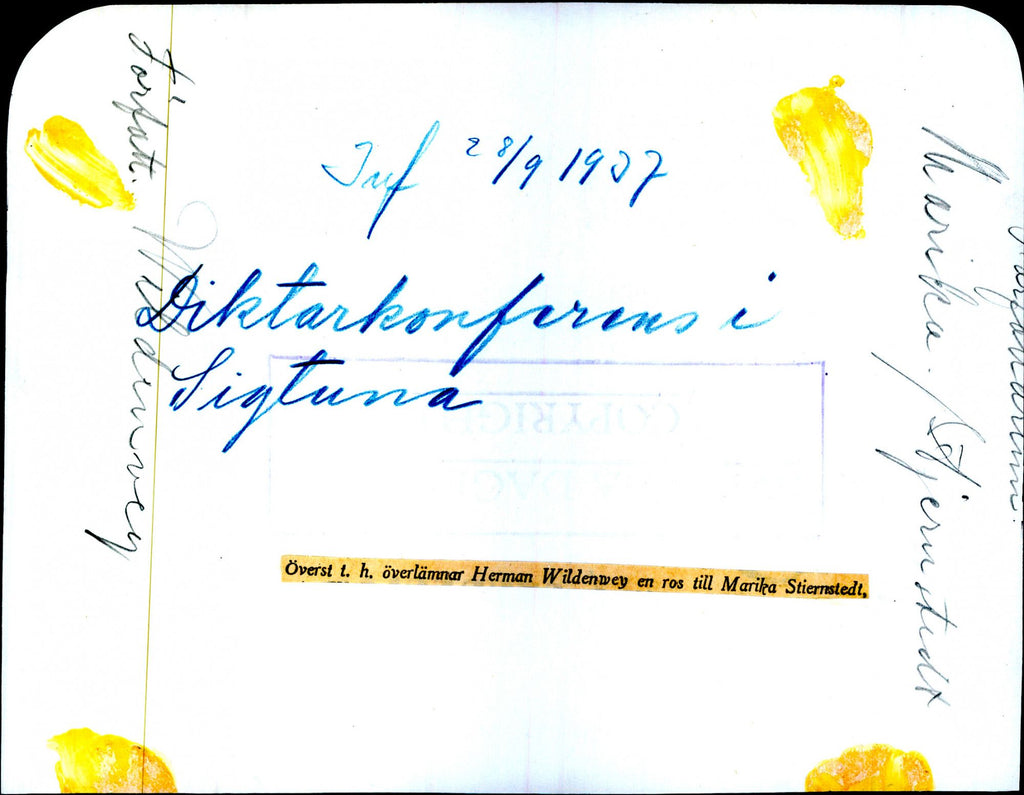 Författ. Wildenwey
Inf 28/9 1937
Diktarkonferens i
Sigtuna
COPYRIGH
Överst t. h. överlämnar Herman Wildenwey en ros till Marika Stiernstedt.
Marika Stjernstedt